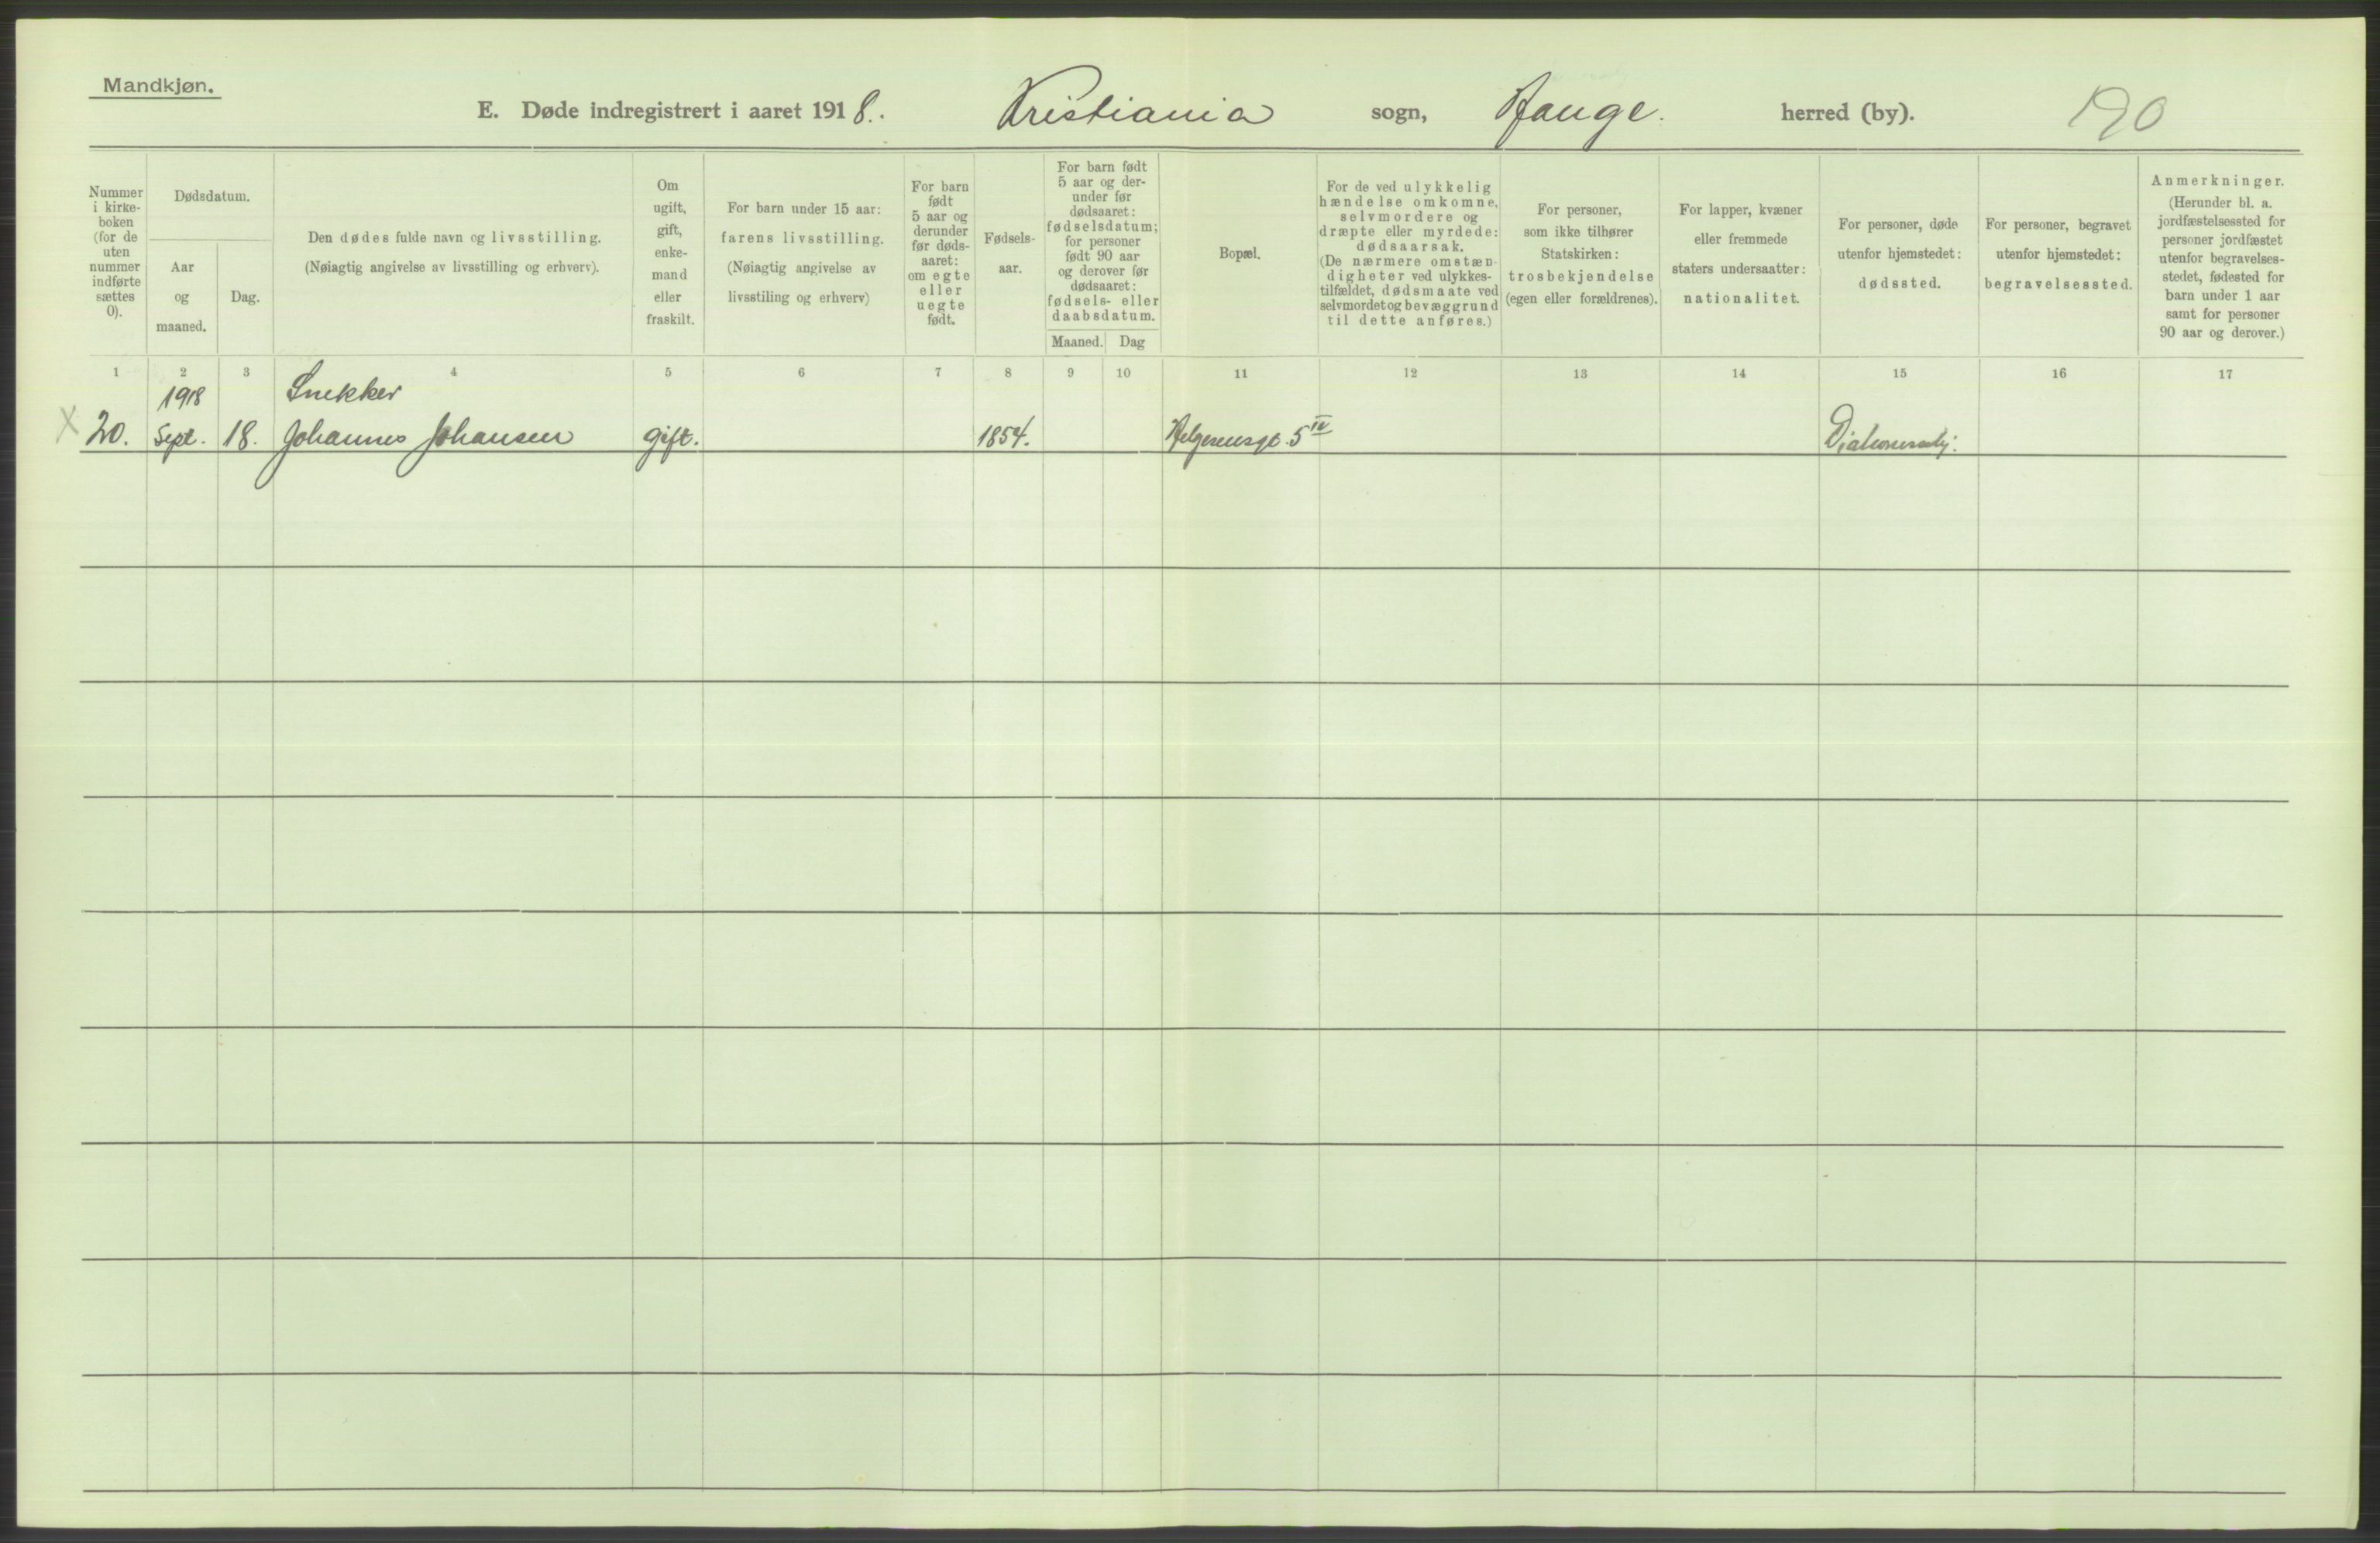 Mandkjøn.
E. Døde indregistrert i aaret 1918. Kristiania sogn, Hauge. herred (by). 190
Nummer i kirke-boken (for de uten nummer indførte sættes 0).
Dødsdatum.
Aar og maaned.
Dag.
Den dødes fulde navn og livsstilling.
(Nøiagtig angivelse av livsstilling og erhverv).
Om ugift, gift, enke-mand eller fraskilt.
For barn under 15 aar:
farens livsstilling.
(Nøiagtig angivelse av
livsstiling og erhverv)
For barn født 5 aar og derunder før døds-aaret: om egte eller uegte født.
Fødsels-aar.
For barn født 5 aar og der-under før dødsaaret: fødselsdatum; for personer født 90 aar og derover før dødsaaret: fødsels- eller daabsdatum.
Maaned. Dag
Bopæl.
For de ved ulykkelig hændelse omkomne, selvmordere og dræpte eller myrdede: dødsaarsak. (De nærmere omstæn-digheter ved ulykkes-tilfældet, dødsmaate ved selvmordet og bevæggrund til dette anføres.)
For personer, som ikke tilhører Statskirken: trosbekjendelse (egen eller forældrenes).
For lapper, kvæner eller fremmede staters undersaatter: nationalitet.
For personer, døde utenfor hjemstedet: dødssted.
For personer, begravet utenfor hjemstedet: begravelsessted.
Anmerkninger. (Herunder bl. a. jordfæstelsessted for personer jordfæstet utenfor begravelses-stedet, fødested for barn under 1 aar samt for personer 90 aar og derover.)
1 2 3 4 5 6 7 8 9 10 11 12 13 14 15 16 17
1918 Snekker
X 20. Sept. 18. Johannes Johansen gift. 1854. Helgesensgt. 5 IV